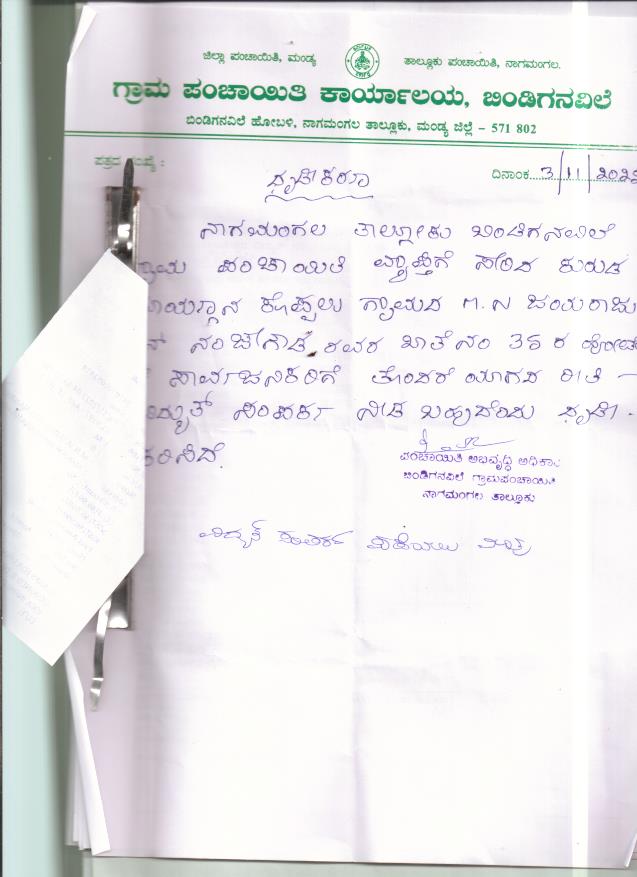 ಜಿಲ್ಲಾ ಪಂಚಾಯಿತಿ, ಮಂಡ್ಯ ತಾಲ್ಲೂಕು ಪಂಚಾಯಿತಿ, ನಾಗಮಂಗಲ.
ಗ್ರಾಮ ಪಂಚಾಯಿತಿ ಕಾರ್ಯಾಲಯ, ಬಿಂಡಿಗನವಿಲೆ
ಬಿಂಡಿಗನವಿಲೆ ಹೋಬಳಿ, ನಾಗಮಂಗಲ ತಾಲ್ಲೂಕು, ಮಂಡ್ಯ ಜಿಲ್ಲೆ – 571 802
ಪತ್ರದ ಸಂಖ್ಯೆ : ದಿನಾಂಕ 3/11/202
ಧೃಢೀಕರಣ
ನಾಗಮಂಗಲ ತಾಲ್ಲೋಕು ಬಿಂಡಿಗನವಿಲೆ
ಗ್ರಾಮ ಪಂಚಾಯಿತಿ ವ್ಯಾಪ್ತಿಗೆ ಸೇರಿದ
ಕೊಪ್ಪಲು ಗ್ರಾಮದ M. N ಜಯರಾಜು
ನಂಜೇಗೌಡ ರವರ ಖಾತೆ ನಂ 36 ರ
ಸಾರ್ವಜನಿಕರಿಗೆ ತೊಂದರೆ ಯಾಗದ ರೀತಿ –
ವಿದ್ಯುತ್ ಸಂಪರ್ಕ ನೀಡ ಬಹುದೆಂದು ಧೃಢೀ -
ಕರಿಸಿದೆ.
ಪಂಚಾಯಿತಿ ಅಬಿವೃದ್ಧಿ ಅಧಿಕಾರಿ
ಬಿಂಡಿಗನವಿಲೆ ಗ್ರಾಮಪಂಚಾಯಿತಿ
ನಾಗಮಂಗಲ ತಾಲ್ಲೂಕು
ವಿದ್ಯುತ್ ಸಂಪರ್ಕ ಪಡೆಯಲು